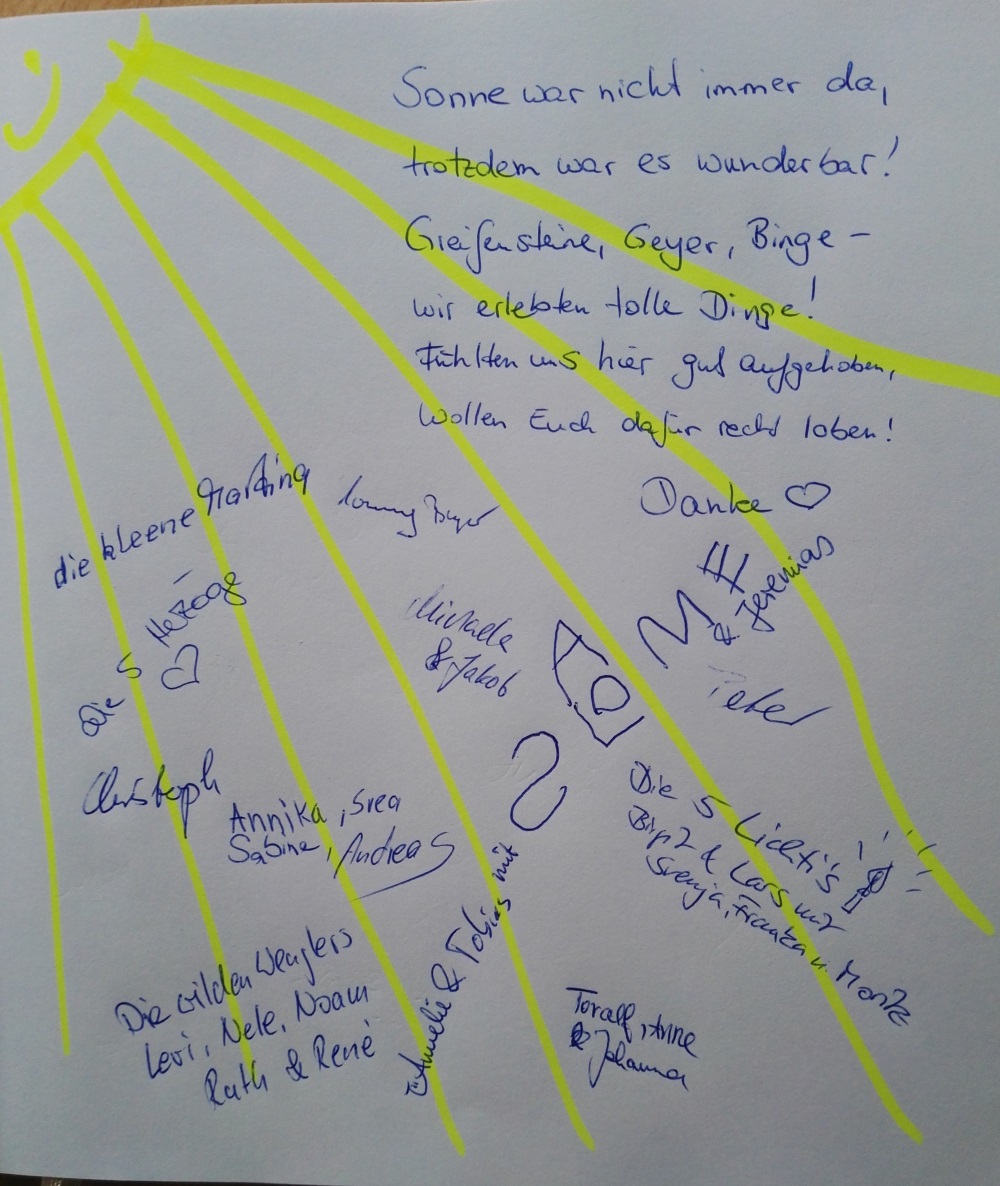 Sonne war nicht immer da,
trotzdem war es wunderbar!
Greifensteine, Geyer, Binge –
wir erlebten tolle Dinge!
Fühlten uns hier gut aufgehoben,
wollen Euch dafür recht loben!
Danke ♡
die kleene
Die 5 Herzöge
♡
Michaela
& Jakob
& Jeremias
Christoph
Annika, Svea
Sabine, Andreas
Die 5 Lichti's
& Lars mit
Svenja, Franka u. Moritz
Die wilden Wenglers
Levi, Nele, Noam
Ruth & René
Amelie & Tobias mit
Toralf, Anne
& Johanna